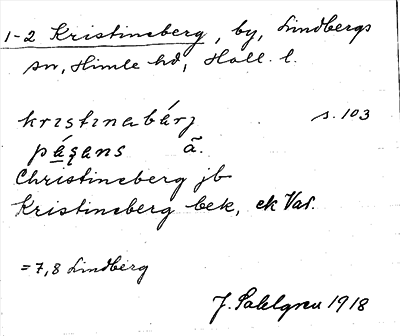 1-2 Kristineberg, by, Lindbergs
sn, Himle hd, Hall. l.
kristinabárj s. 103
pásans ã.
Christineberg jb
Kristineberg bek, ek Var.
=7,8 Lindberg
J. Sahlgren 1918